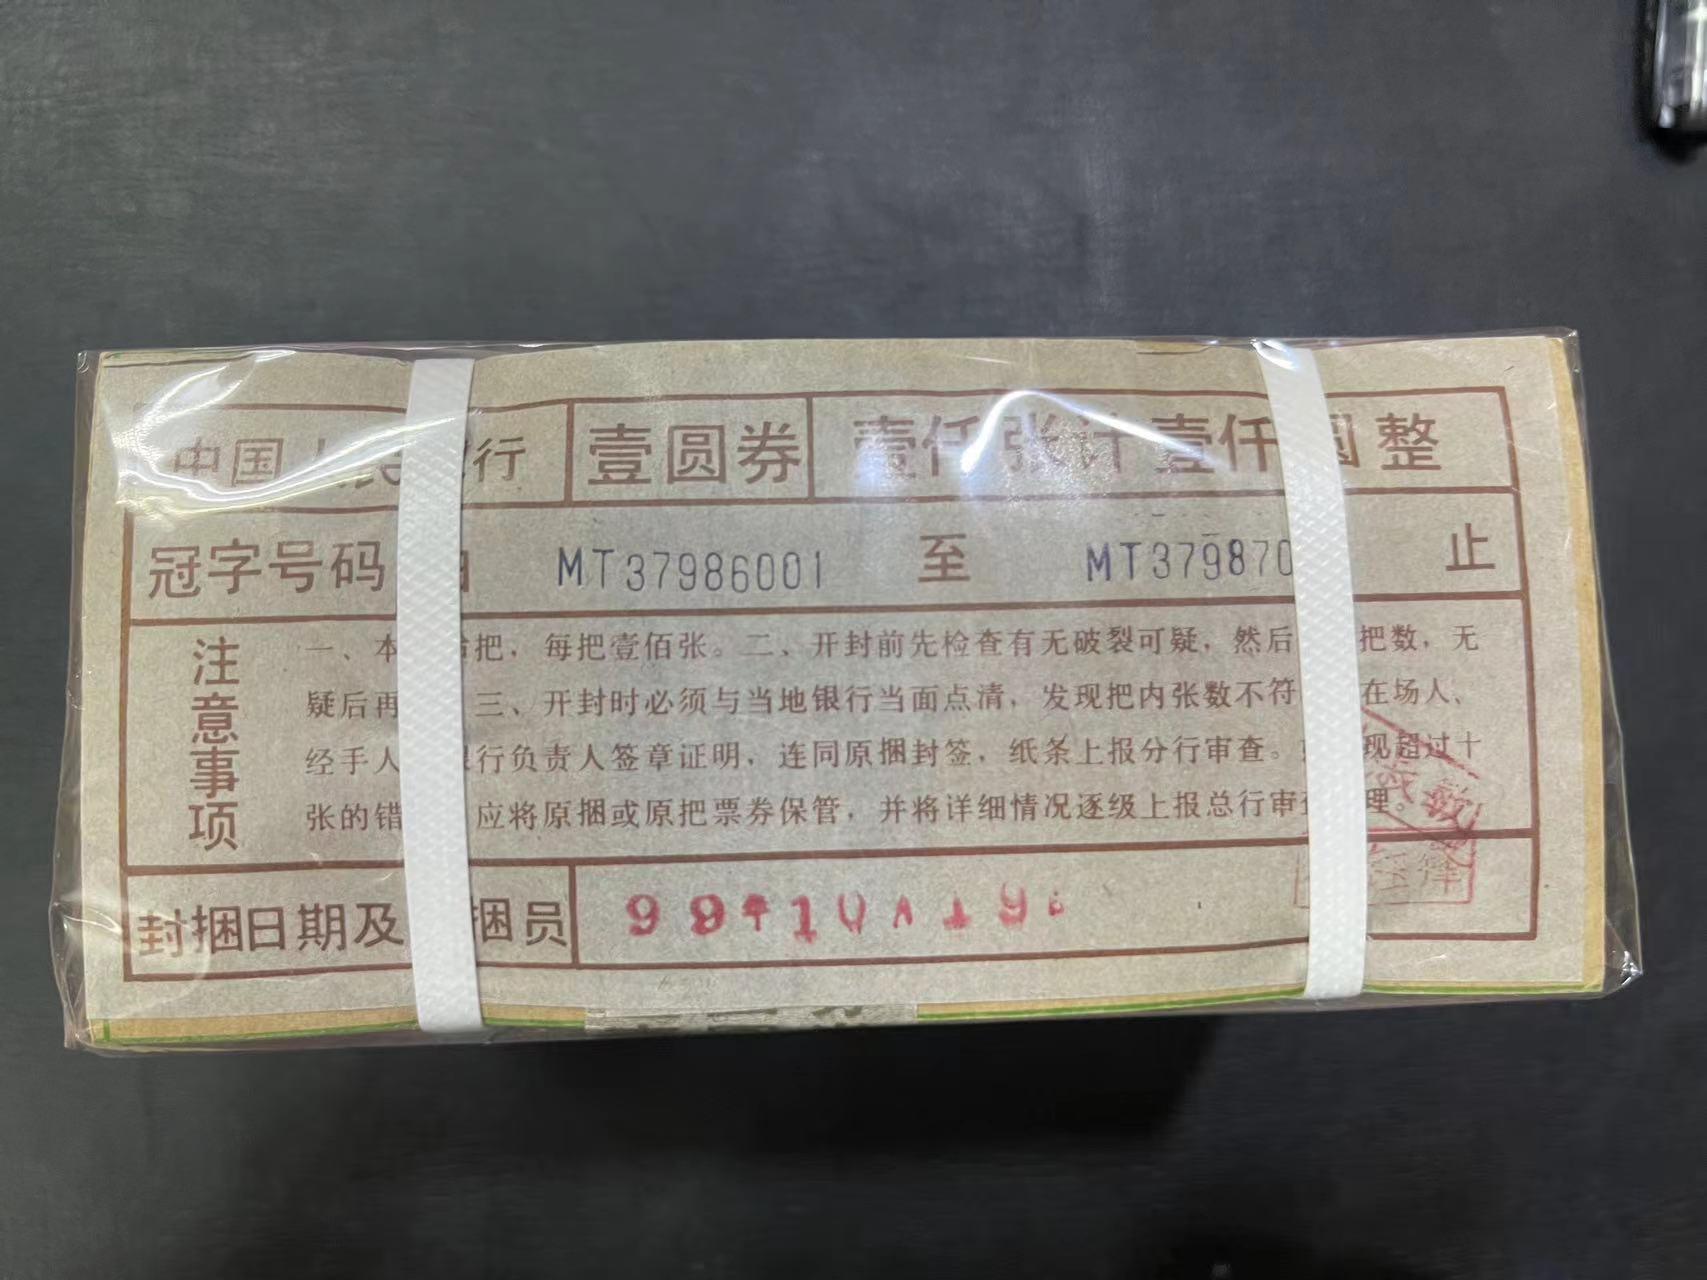 中国人民 行 壹圆券 壹仟张计壹仟圆整
冠字号码 由 MT37986001 至 MT379870 止
注意事项
一、本 拾把，每把壹佰张。二、开封前先检查有无破裂可疑，然后 把数，无
疑后再 三、开封时必须与当地银行当面点清，发现把内张数不符 在场人、
经手人 银行负责人签章证明，连同原捆封签，纸条上报分行审查。 现超过十
张的错 应将原捆或原把票券保管，并将详细情况逐级上报总行审查 理。
封捆日期及 捆员 99 10